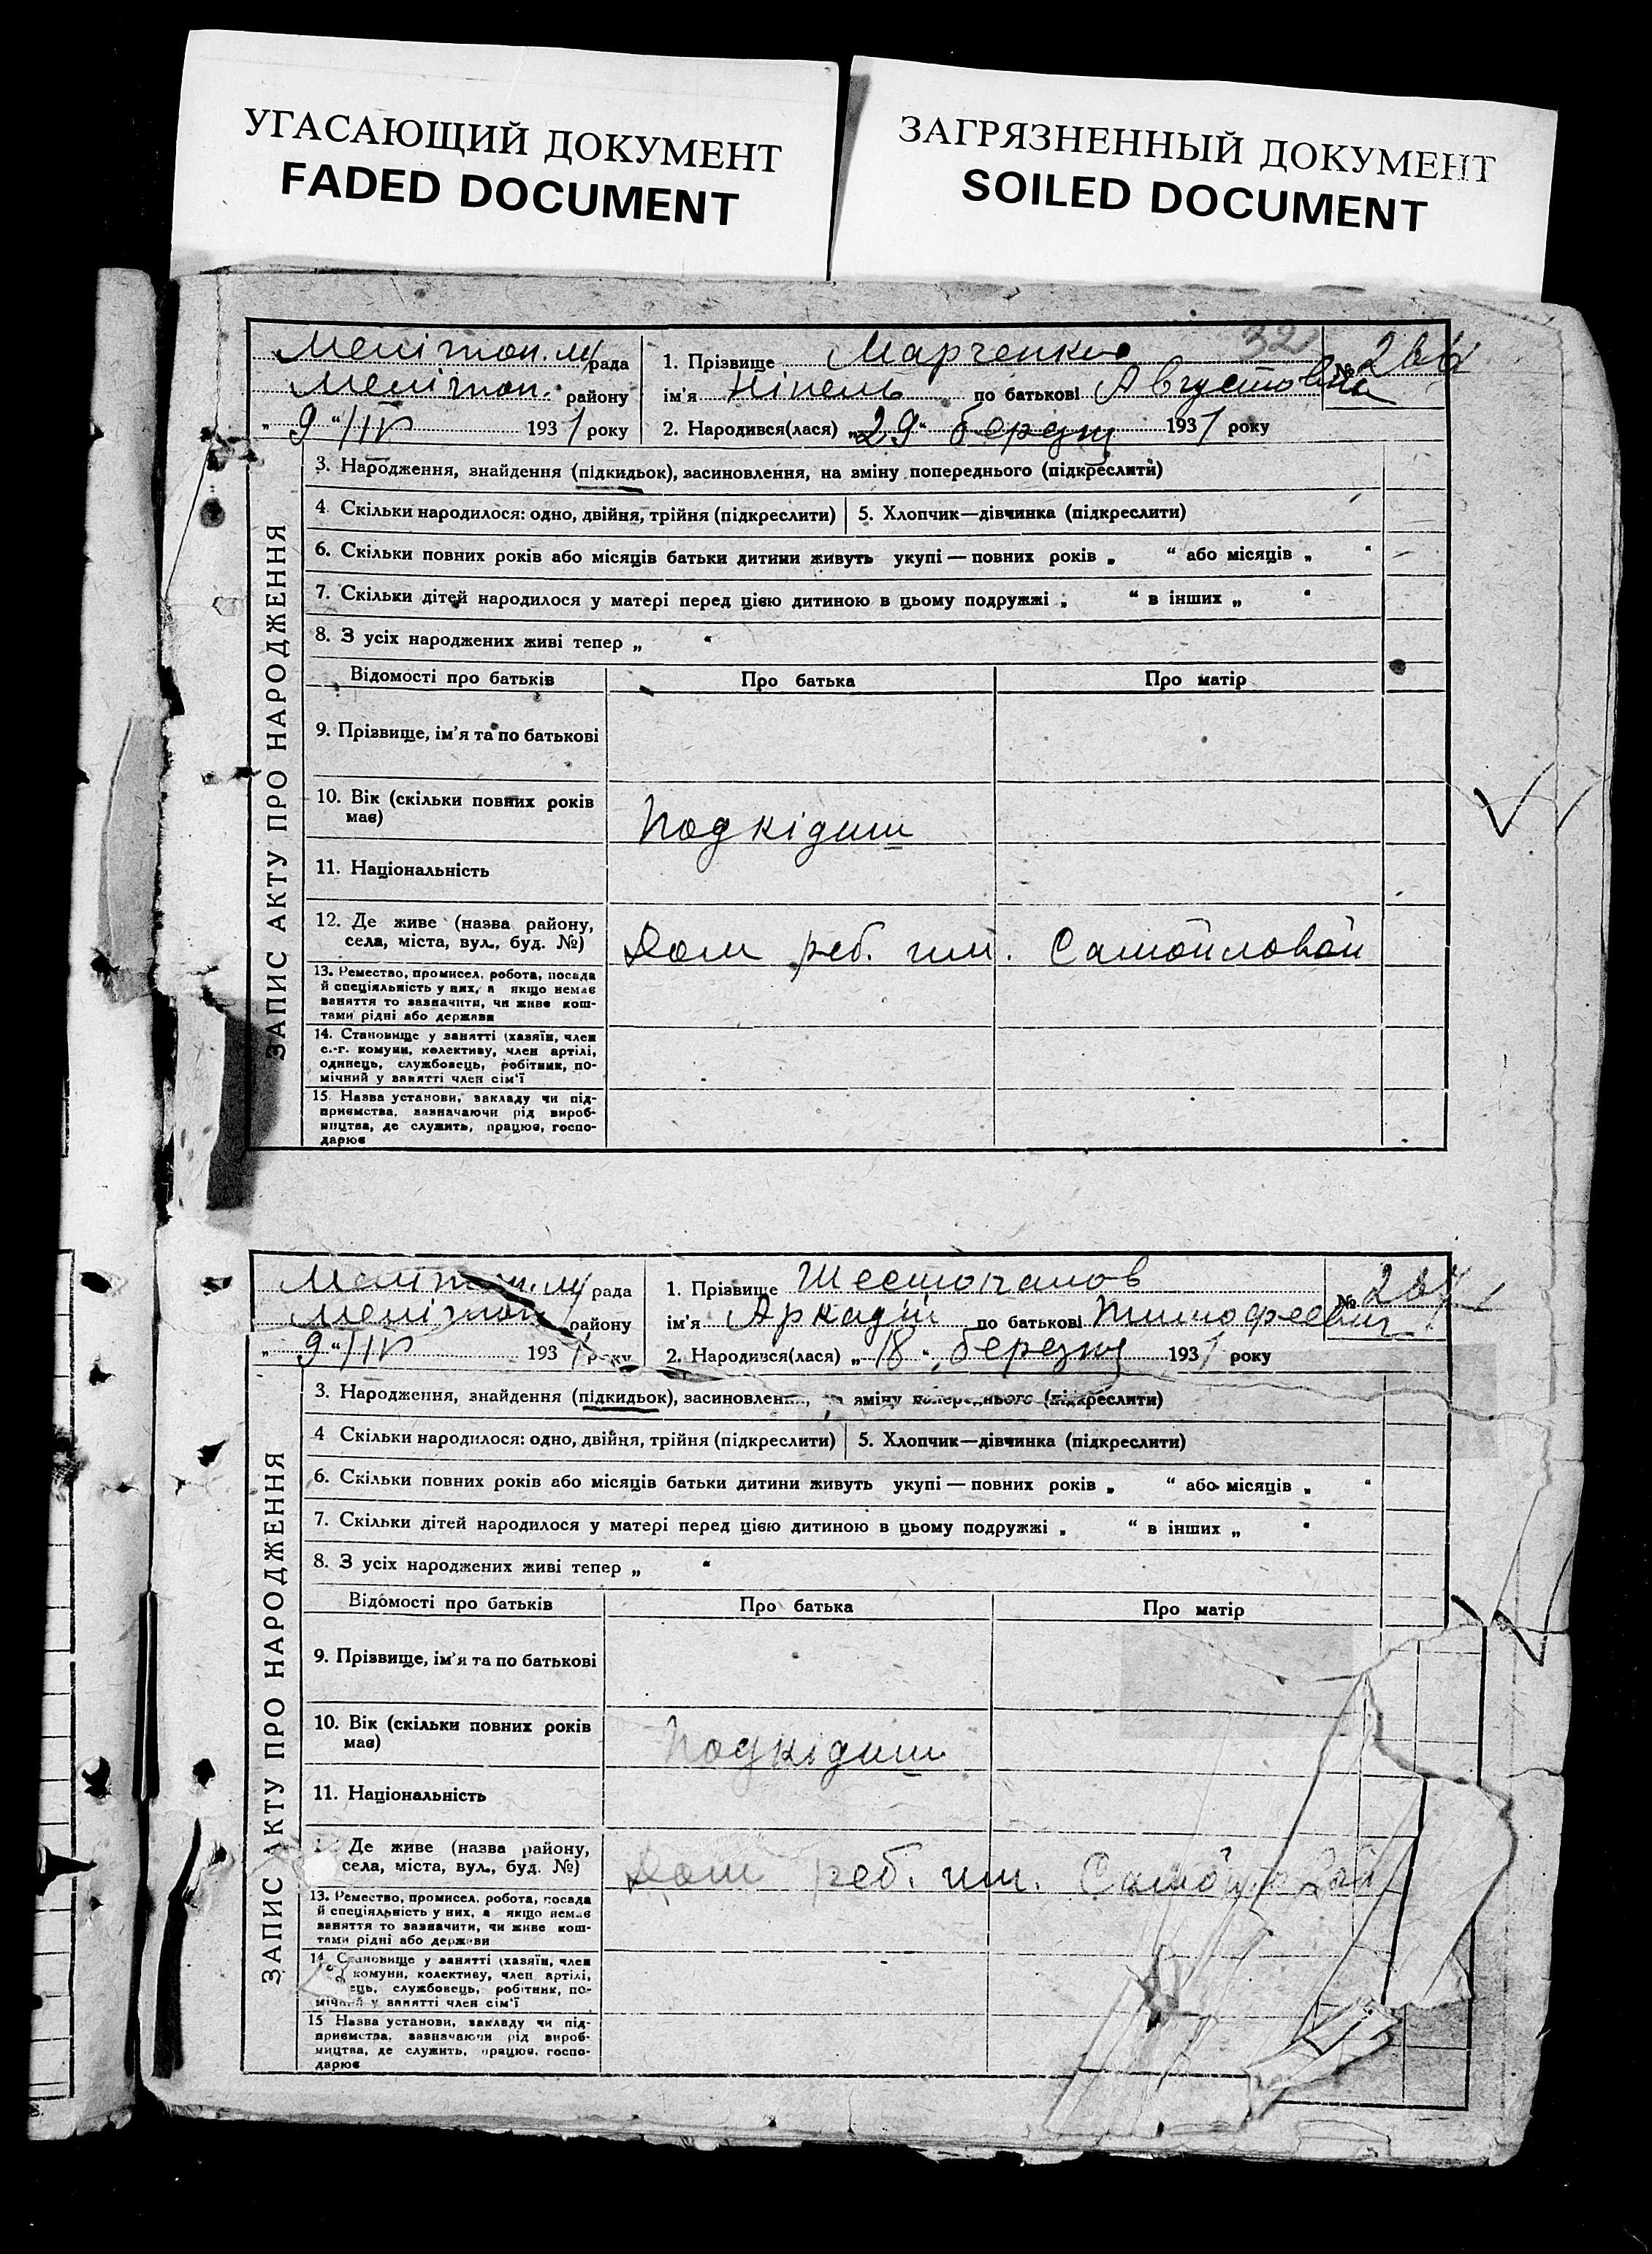 УГАСАЮЩИЙ ДОКУМЕНТ
FADED DOCUMENT
ЗАГРЯЗНЕННЫЙ ДОКУМЕНТ
SOILED DOCUMENT
ЗАПИС АКТУ ПРО НАРОДЖЕННЯ
Мелітоп. м/рада
Мелітоп. району
„ 9 “/IV 1931 року
32
1. Прізвище Марченко
№
ім'я Нінель по батькові Августовна
2. Народився(лася) „29“ березня 1931 року
3. Народження, знайдення (підкидьок), засиновлення, на зміну попереднього (підкреслити)
4 Скільки народилося: одно, двійня, трійня (підкреслити) 5. Хлопчик—дівчинка (підкреслити)
6. Скільки повних років або місяців батьки дитини живуть укупі — повних років „ “ або місяців „ “
7. Скільки дітей народилося у матері перед цією дитиною в цьому подружжі „ “ в інших „ “
8. З усіх народжених живі тепер „ “
Відомості про батьків Про батька Про матір
9. Прізвище, ім'я та по батькові
10. Вік (скільки повних років
має)
Подкідиш
11. Національність
12. Де живе (назва району,
села, міста, вул., буд. №)
Дом реб. им. Самойловой
13. Ремество, промисел, робота, посада
й спеціяльність у них, а якщо немає
заняття то зазначити, чи живе кош-
тами рідні або держави
14. Становище у занятті (хазяїн, член
с.-г. комуни, колективу, член артілі,
одинець, службовець, робітник, по-
мічний у занятті член сім'ї
15. Назва установи, закладу чи під-
приємства, зазначаючи рід вироб-
ництва, де служить, працює, госпо-
дарює
ЗАПИС АКТУ ПРО НАРОДЖЕННЯ
Мелітоп. м/рада
Мелітоп. району
„ 9 “/IV 1931 року
1. Прізвище Шестопалов
№
ім'я Аркадій по батькові Тимофеевич
2. Народився(лася) „18“ березня 1931 року
3. Народження, знайдення (підкидьок), засиновлення, на зміну попереднього (підкреслити)
4 Скільки народилося: одно, двійня, трійня (підкреслити) 5. Хлопчик—дівчинка (підкреслити)
6. Скільки повних років або місяців батьки дитини живуть укупі — повних років „ “ або місяців „ “
7. Скільки дітей народилося у матері перед цією дитиною в цьому подружжі „ “ в інших „ “
8. З усіх народжених живі тепер „ “
Відомості про батьків Про батька Про матір
9. Прізвище, ім'я та по батькові
10. Вік (скільки повних років
має)
Подкідиш
11. Національність
Де живе (назва району,
села, міста, вул., буд. №)
Дом реб. им. Самойловой
13. Ремество, промисел, робота, посада
й спеціяльність у них, а якщо немає
заняття то зазначити, чи живе кош-
тами рідні або держави
14. Становище у занятті (хазяїн, член
комуни, колективу, член артілі,
службовець, робітник, по-
мічний у занятті член сім'ї
15 Назва установи, закладу чи під-
приємства, зазначаючи рід вироб-
ництва, де служить, працює, госпо-
дарює